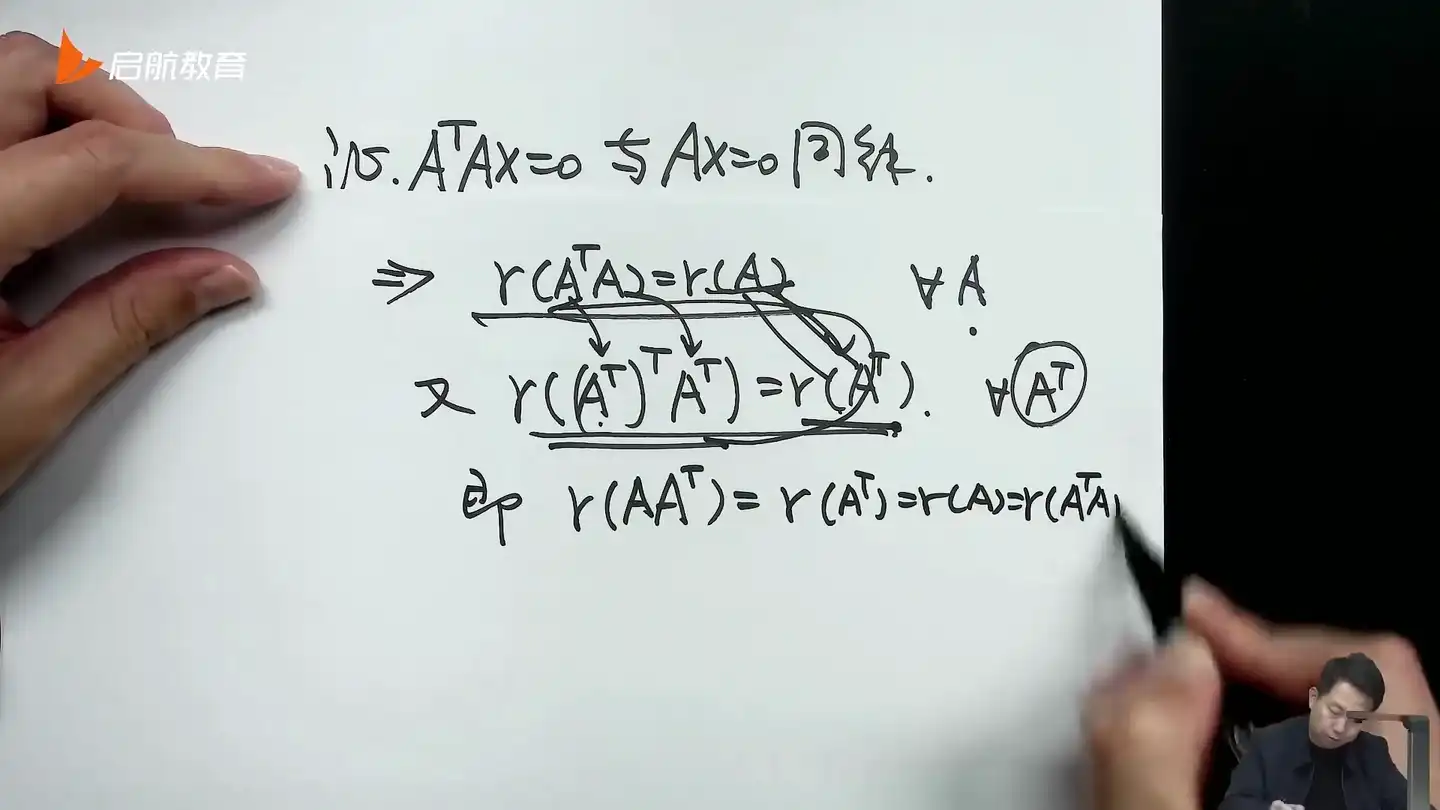 启航教育
证. AᵀAx=0 与 Ax=0 同解.
⇒ r(AᵀA)=r(A) ∀ A
又 r((Aᵀ)ᵀAᵀ)=r(Aᵀ). ∀ Aᵀ
即 r(AAᵀ)= r(Aᵀ)=r(A)=r(AᵀA)